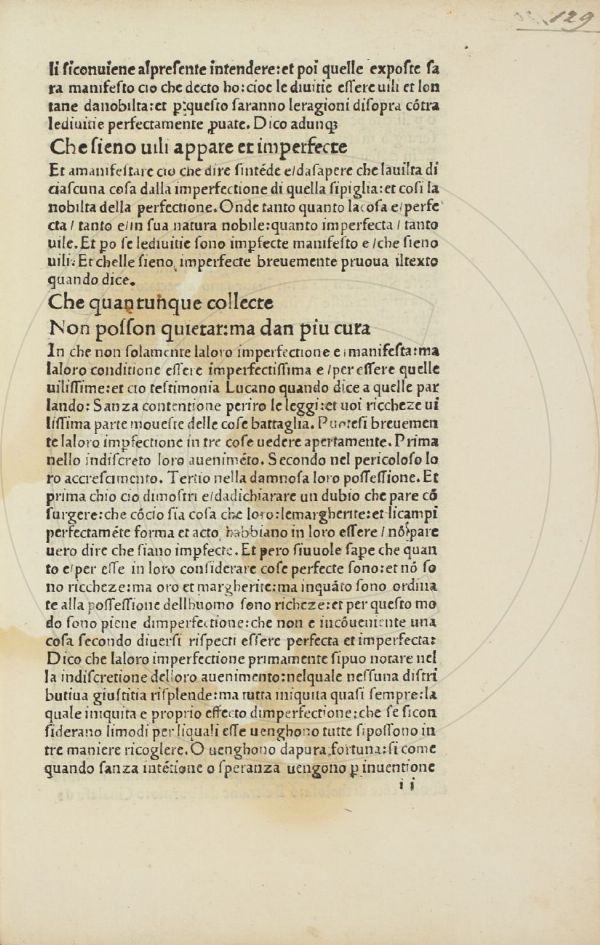 129
li siconuiene alpresente intendere:et poi quelle exposte sa
ra manifesto cio che decto ho:cioe le diuitie essere uili et lon
tane danobilta:et p̱ questo saranno leragioni disopra cōtra
lediuitie perfectamente ꝓuate. Dico adunqꝫ
Che sieno uili appare et imperfecte
Et amanifestare cio che dire sintēde e/dasapere che lauilta di
ciascuna cosa dalla imperfectione di quella sipiglia:et cosi la
nobilta della perfectione. Onde tanto quanto lacosa e/perfe
cta/ tanto e/in sua natura nobile:quanto imperfecta/ tanto
uile. Et po se lediuitie sono impfecte manifesto e/che sieno
uili. Et chelle sieno imperfecte breuemente pruoua iltexto
quando dice.
Che quantunque collecte
Non posson quietar:ma dan piu cura
In che non solamente laloro imperfectione e manifesta:ma
laloro conditione essere imperfectissima e/per essere quelle
uilissime:et cio testimonia Lucano quando dice a quelle par
lando:Sanza contentione periro le leggi:et uoi riccheze ui
lissima parte moueste delle cose battaglia. Puotesi breuemen
te laloro impfectione in tre cose uedere apertamente. Prima
nello indiscreto loro aueniméto. Secondo nel pericoloso lo
ro accrescimento. Tertio nella damnosa loro possessione. Et
prima chio cio dimostri e/dadichiarare un dubio che pare cō
surgere:che cōcio sia cosa che loro:lemargherite:et licampi
perfectaméte forma et acto habbiano in loro essere/nō pare
uero dire che siano impfecte. Et pero siuuole sape che quan
to e/per esse in loro considerare cose perfecte sono:et nō so
no riccheze:ma oro et margherite:ma inquāto sono ordina
te alla possessione dellhuomo sono richeze:et per questo mo
do sono piene dimperfectione:che non e incōueniente una
cosa secondo diuersi rispecti essere perfecta et imperfecta:
Dico che laloro imperfectione primamente sipuo notare nel
la indiscretione delloro auenimento:nelquale nessuna distri
butiua giustitia risplende:ma tutta iniquita quasi sempre:la
quale iniquita e proprio effecto dimperfectione:che se sicon
siderano limodi per liquali esse uenghono tutte sipossono in
tre maniere ricoglere. O uenghono dapura fortuna:si come
quando sanza intétione o speranza uengono p̱ inuentione
i i